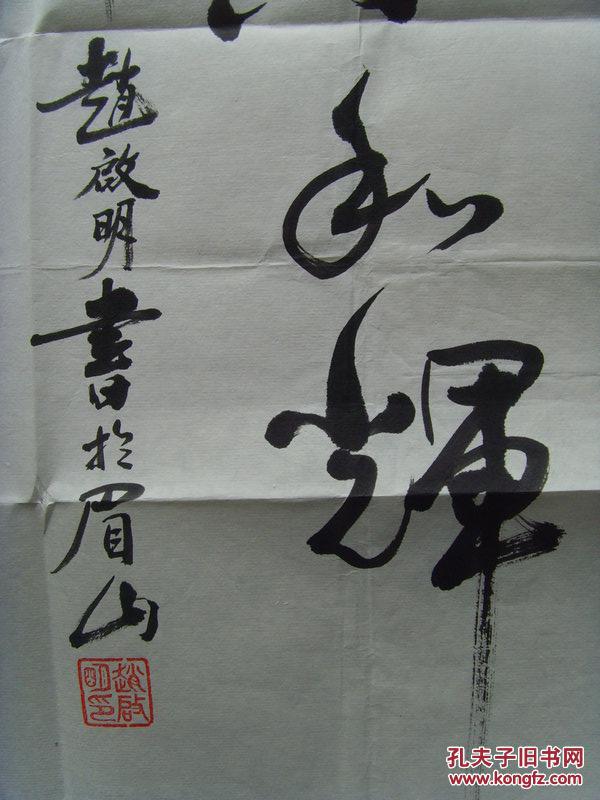 和輝
趙啟明書於眉山
趙啟明印
孔夫子旧书网
www.kongfz.com